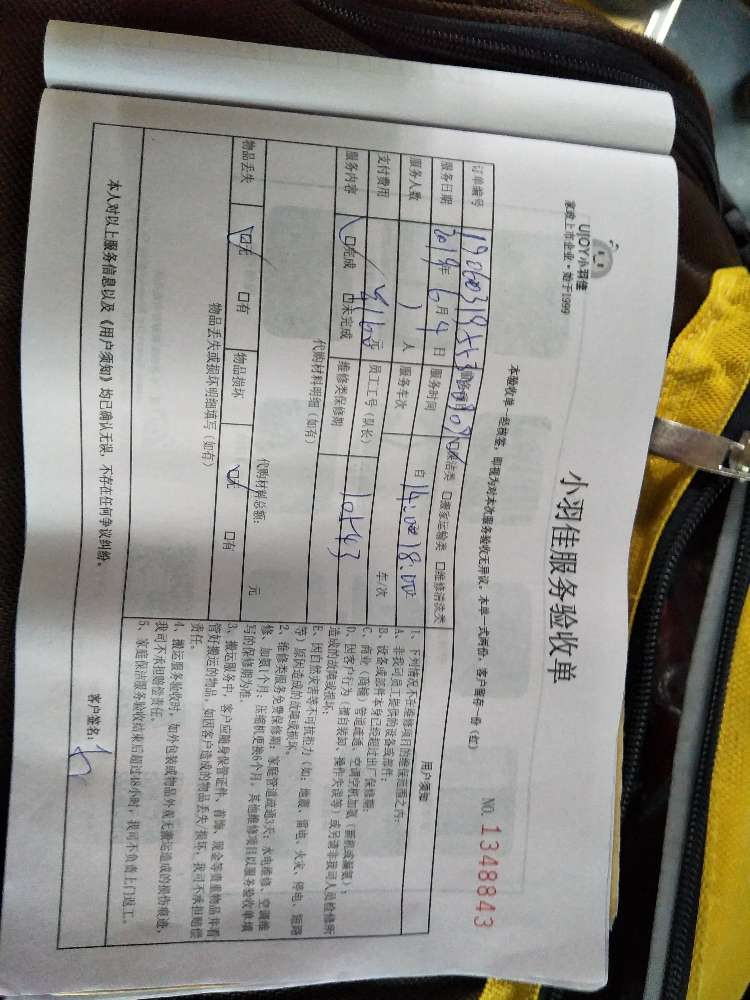 UJOY小羽佳
家政上市企业·始于1999
小羽佳服务验收单
NO. 1348843
本验收单一经核签，即视为对本次服务验收无异议，本单一式两份，客户留存一份（红）
订单编号
保洁类 搬家运输类 维修清洗类
服务日期 2019年 6月 4日 服务时间 自14:00 18:00
服务人数 1 人 服务车次 车/次
支付费用 元 员工工号（队长） 10543
服务内容 完成 未完成 维修类保修期
代购材料明细（如有）
代购材料总额： 元
物品丢失 无 有 物品损坏 无 有
物品丢失或损坏明细填写（如有）
本人对以上服务信息以及《用户须知》均已确认无误，不存在任何争议纠纷。
用户须知
1、下列情况不在维修项目的维保范围之内：
A、非我司员工提供的设备或部件；
B、设备或部件本身已经超过出厂保修期；
C、商业（商铺）管道疏通、空调空机加氨（新机或漏氨）；
D、因客户行为（擅自装卸、操作失误等）或另请非我司人员检修所
造成的故障或损坏；
E、因自然灾害等不可抗拒力（如：地震、雷电、火灾、停电、短路
等）原因造成的故障或损坏。
2、维修类服务免费保修期：家庭管道疏通3天；水电维修、空调维
修、加氨1个月；压缩机更换6个月，其他维修项目以服务验收单填
写的保修期为准。
3、搬运服务中，客户应随身保管证件、首饰、现金等贵重物品并看
管好搬运的物品，如因客户造成的物品丢失、损坏，我司不承担赔偿
责任。
4、搬运服务验收时，如外包装或物品外观无搬运造成的损伤痕迹，
我司不承担赔偿责任。
5、家庭保洁服务验收结束后超过48小时，我司不负责上门返工。
客户签名：